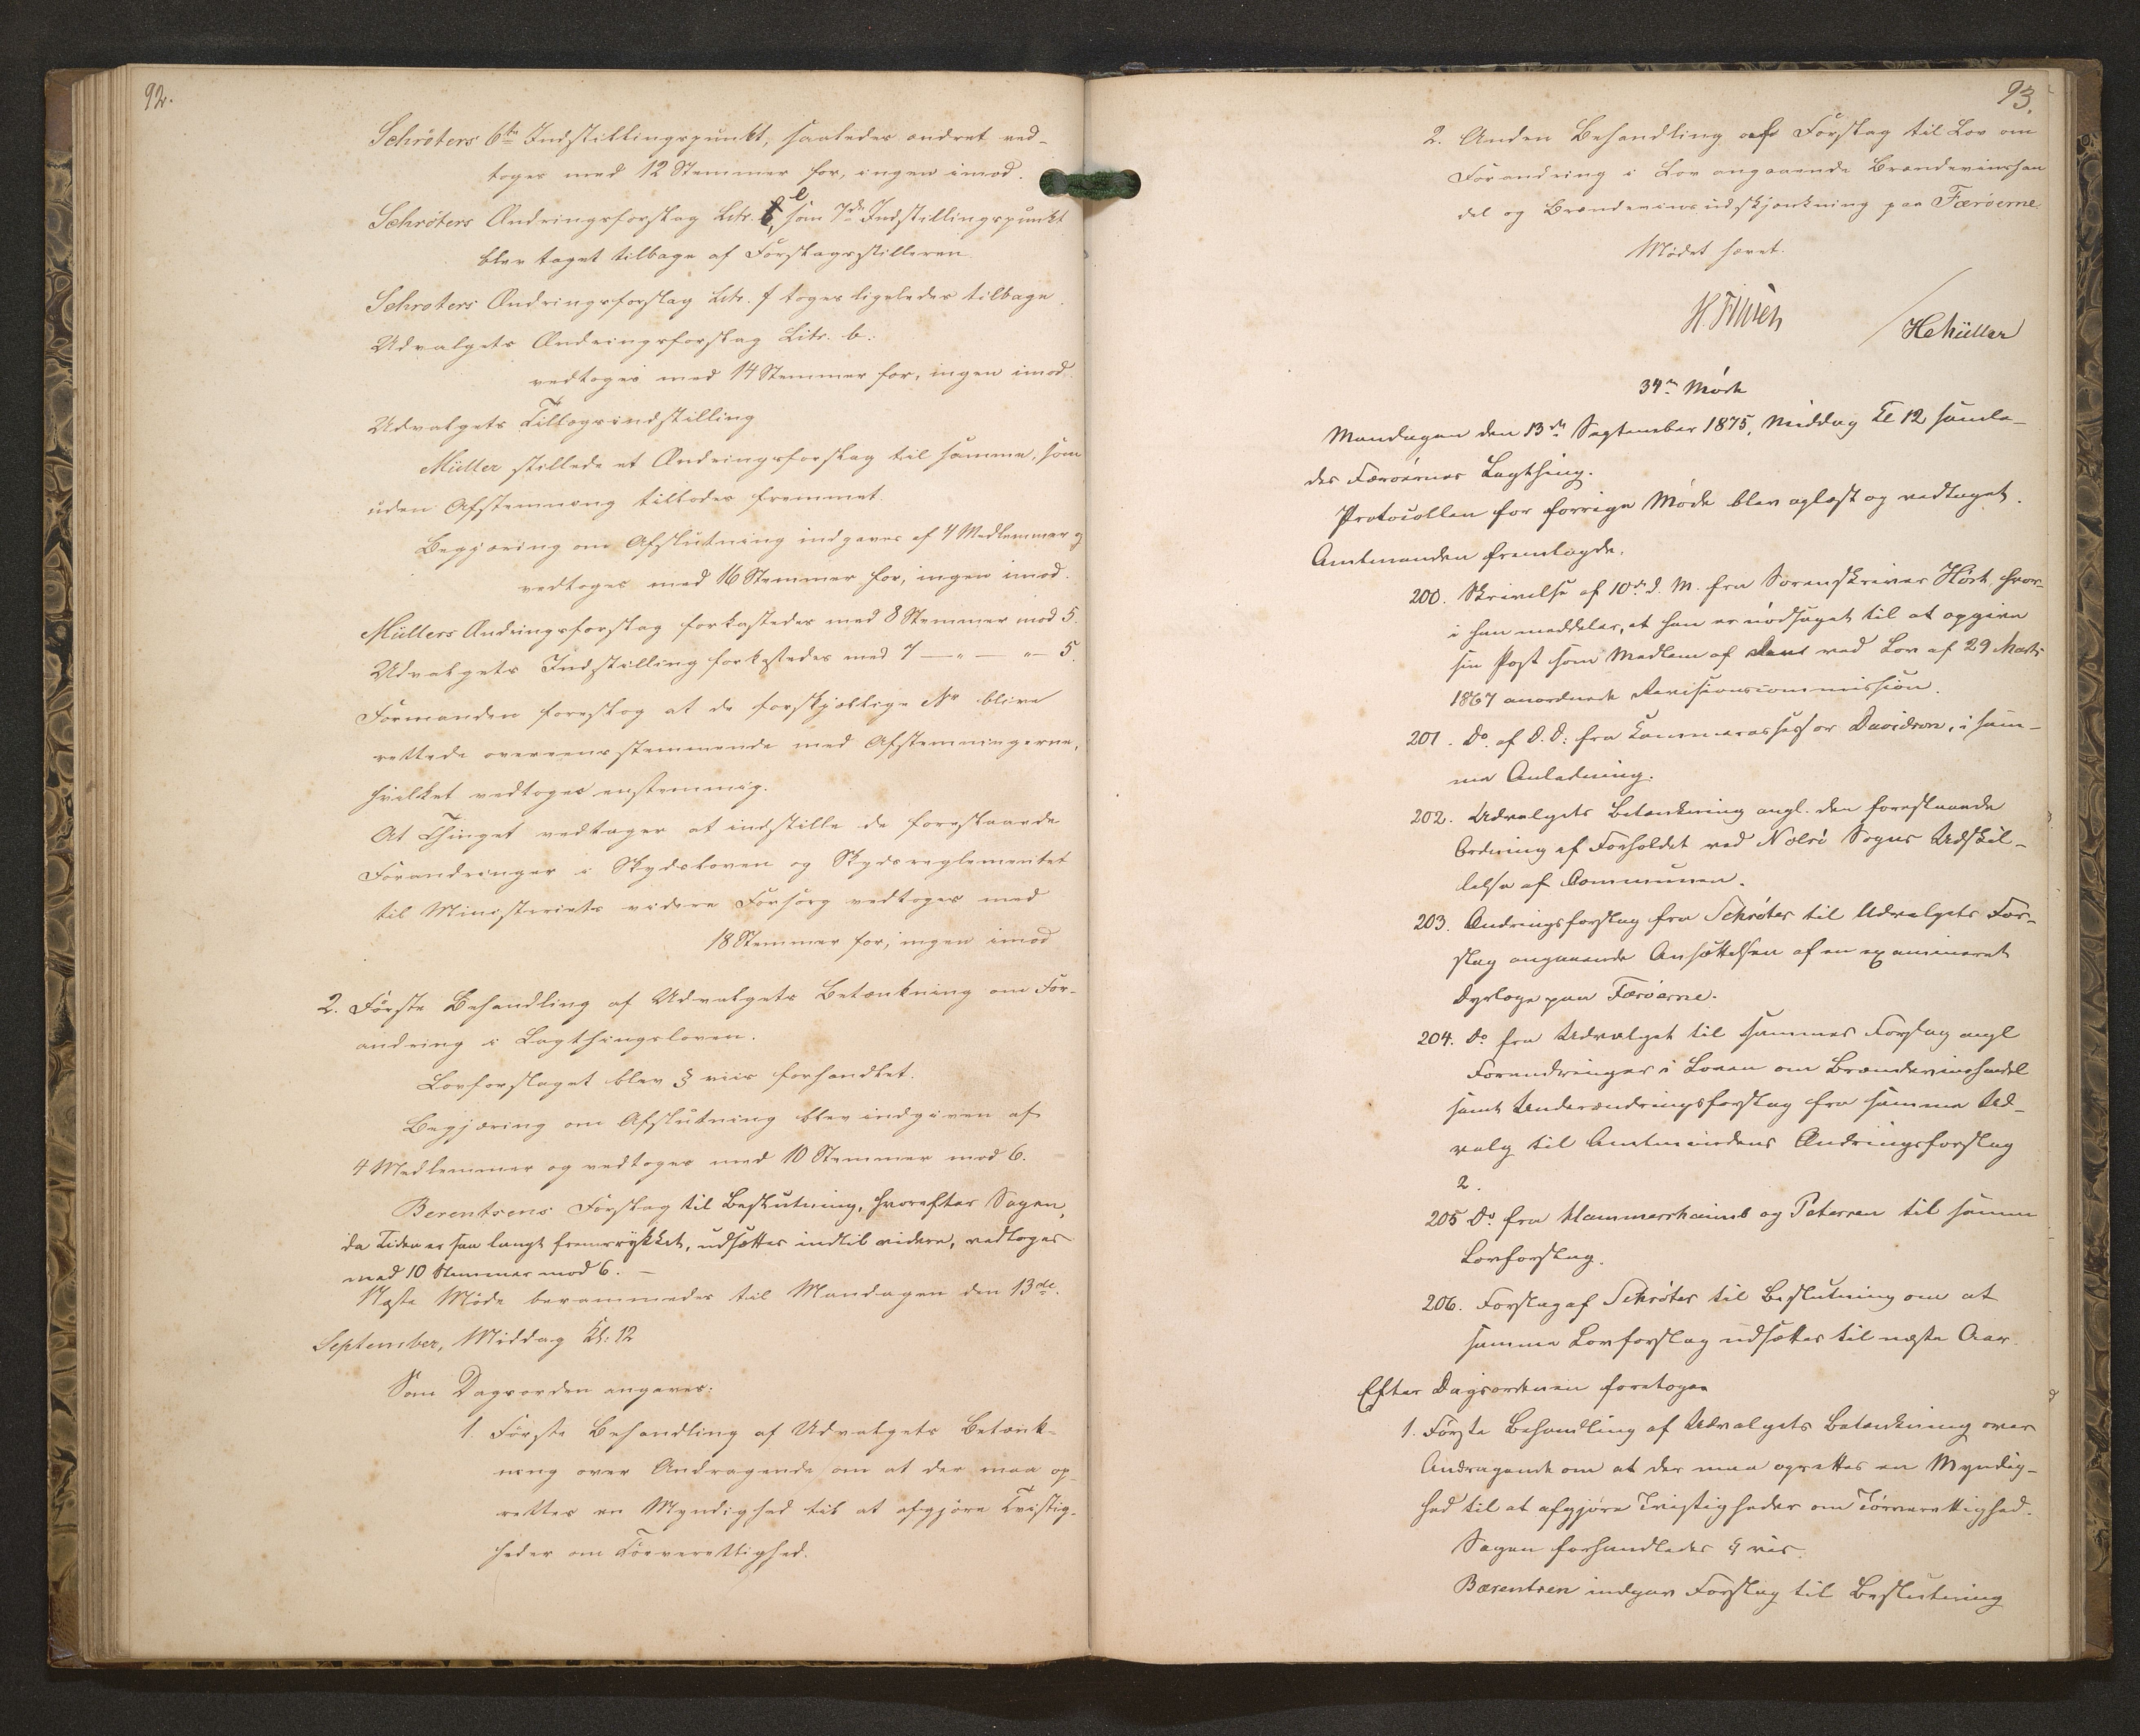 92.
Schröters 6te Indstillingspunkt, saaledes ændret ved-
toges med 12 Stemmer for, ingen imod.
Schröters Ændringsforslag Litr. e, som 7de Indstillingspunkt
blev taget tilbage af Forslagsstilleren.
Schröters Ændringsforslag Litr. f toges ligeledes tilbage.
Udvalgets Ændringsforslag Litr. b.
vedtoges med 14 Stemmer for, ingen imod.
Udvalgets Tillægsindstilling
Müller stillede et Ændringsforslag til samme, som
uden Afstemning tillodes fremmet.
Begjæring om Afslutning indgaves af 4 Medlemmer og
vedtoges med 16 Stemmer for, ingen imod.
Müllers Ændringsforslag forkastedes med 8 Stemmer mod 5.
Udvalgets Indstilling forkastedes med 7 — " — " — 5.
Formanden foreslog at de forskjællige Nr blive
rettede overeensstemmende med Afstemningerne,
hvilket vedtoges enstemmig.
At Thinget vedtager at indstille de foreslaaede
Forandringer i Skydsloven og Skydsreglementet
til Ministeriets videre Forsorg vedtoges med
18 Stemmer for, ingen imod
2. Første Behandling af Udvalgets Betænkning om For-
andring i Lagthingsloven.
Lovforslaget blev § viis forhandlet.
Begjæring om Afslutning blev indgiven af
4 Medlemmer og vedtoges med 10 Stemmer mod 6.
Berentsens Forslag til Beslutning, hvorefter Sagen,
da Tiden er saa langt fremrykket, udsættes indtil videre, vedtoges
med 10 Stemmer mod 6. —
Næste Møde berammedes til Mandagen den 13de
September, Middag Kl: 12
Som Dagsorden angaves:
1. Første Behandling af Udvalgets Betænk-
ning over Andragende om at der maa op-
rettes en Myndighed til at afgjøre Tvistig-
heder om Tørverettighed.
93.
2. Anden Behandling af Forslag til Lov om
Forandring i Lov angaaende Brændeviinshan
del og Brændeviinsudskjænkning paa Færøerne.
Mødet hævet.
H. Müller
34te Møde
Mandagen den 13de September 1875, Middag Kl 12 samle-
des Færøernes Lagthing.
Protocollen for forrige Møde blev oplæst og vedtaget.
Amtmanden fremlagde.
200. Skrivelse af 10de d. M. fra Sorenskriver Høst, hvor-
i han meddeler, at han er nødsaget til at opgive
sin Post som Medlem af den ved Lov af 29 Marts
1867 anordnede Revisionscommission.
201. Do. af d. D: fra Kammerassessor Davidson, i sam-
me Anledning.
202. Udvalgets Betænkning angl. den foreslaaede
Ordning af Forholdet ved Nolsö Sogns Udskil-
lelse af Communen.
203. Ændringsforslag fra Schröter til Udvalgets For-
slag angaaende Ansættelsen af en examineret
Dyrlæge paa Færøerne.
204. Do fra Udvalget til sammes Forslag angl
Forandringer i Loven om Brændeviinshandel
samt Underændringsforslag fra samme Ud-
valg til Amtmandens Ændringsforslag
2.
205 Do fra Hammershaimb og Petersen til samme
Lovforslag.
206. Forslag af Schröter til Beslutning om at
samme Lovforslag udsættes til næste Aar.
Efter Dagsordenen foretoges
1. Første Behandling af Udvalgets Betænkning over
Andragende om at der maa oprettes en Myndig-
hed til at afgjøre Tvistigheder om Tørverettighed.
Sagen forhandledes § vis.
Bærentsen indgav Forslag til Beslutning